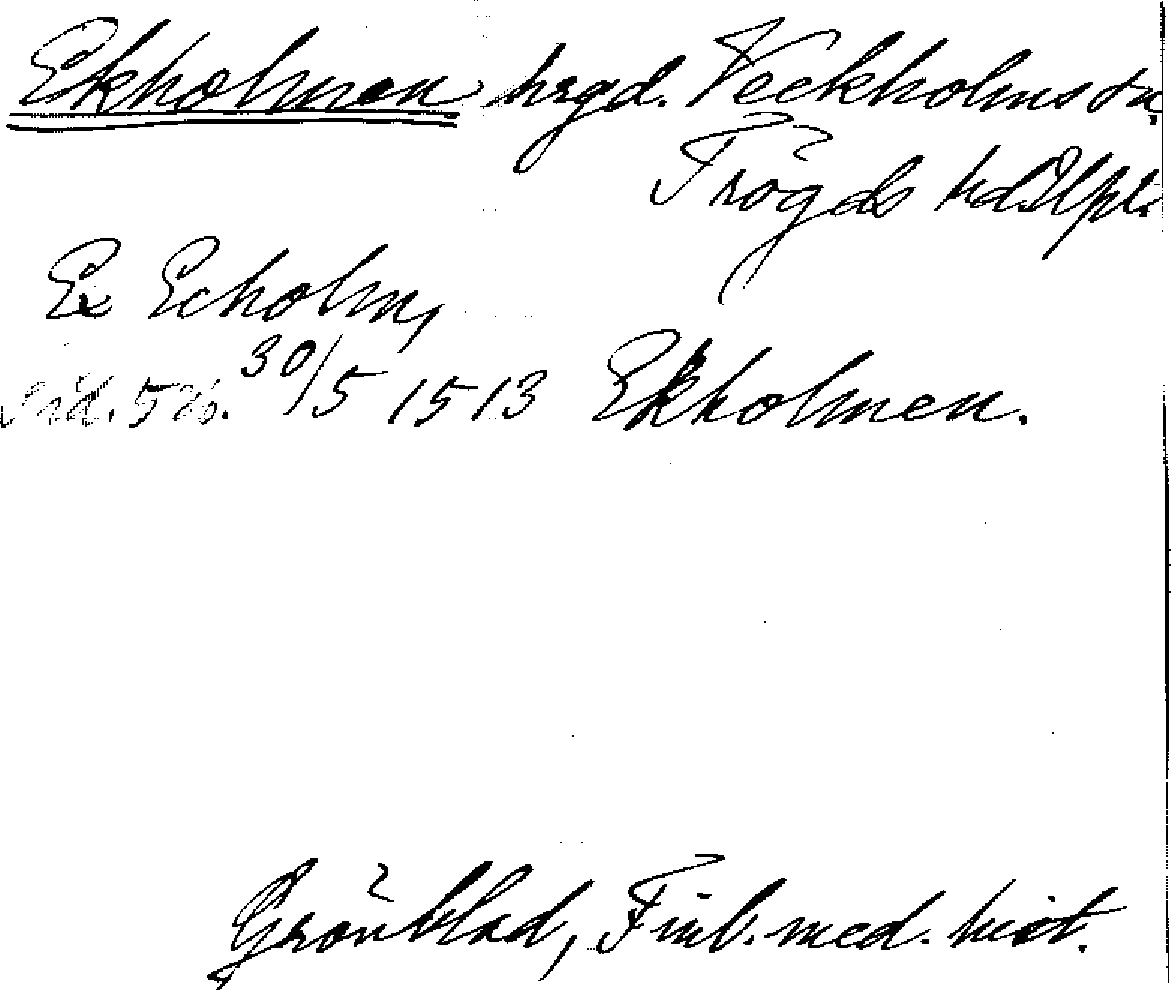 Ekholmen hrgd. Veckholms sn.
Trögds hd. Upl.
Ex Echolm,
sid. 526. 30/5 1513 Ekholmen.
Grönblad, Finl. med. hist.